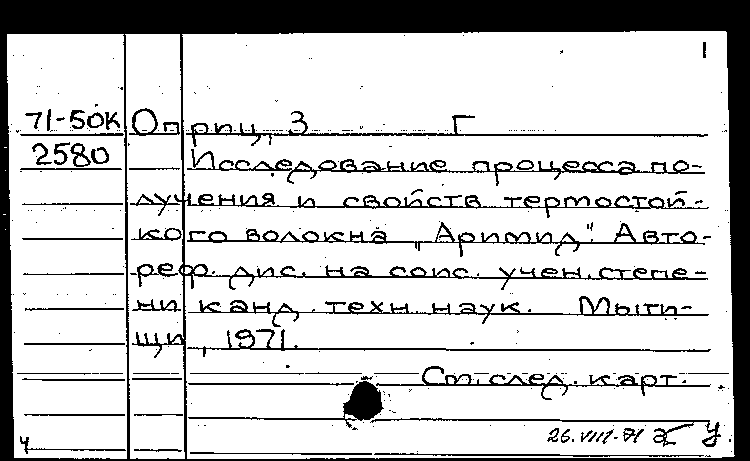 1
71-50к Оприц, З Г
2580 Исследование процесса по-
лучения и свойств термостой-
кого волокна „Аримид". Авто-
реф. дис. на соис. учен. степе-
ни канд. техн. наук. Мыти-
щи, 1971.
См. след. карт.
26.VIII-71
ч